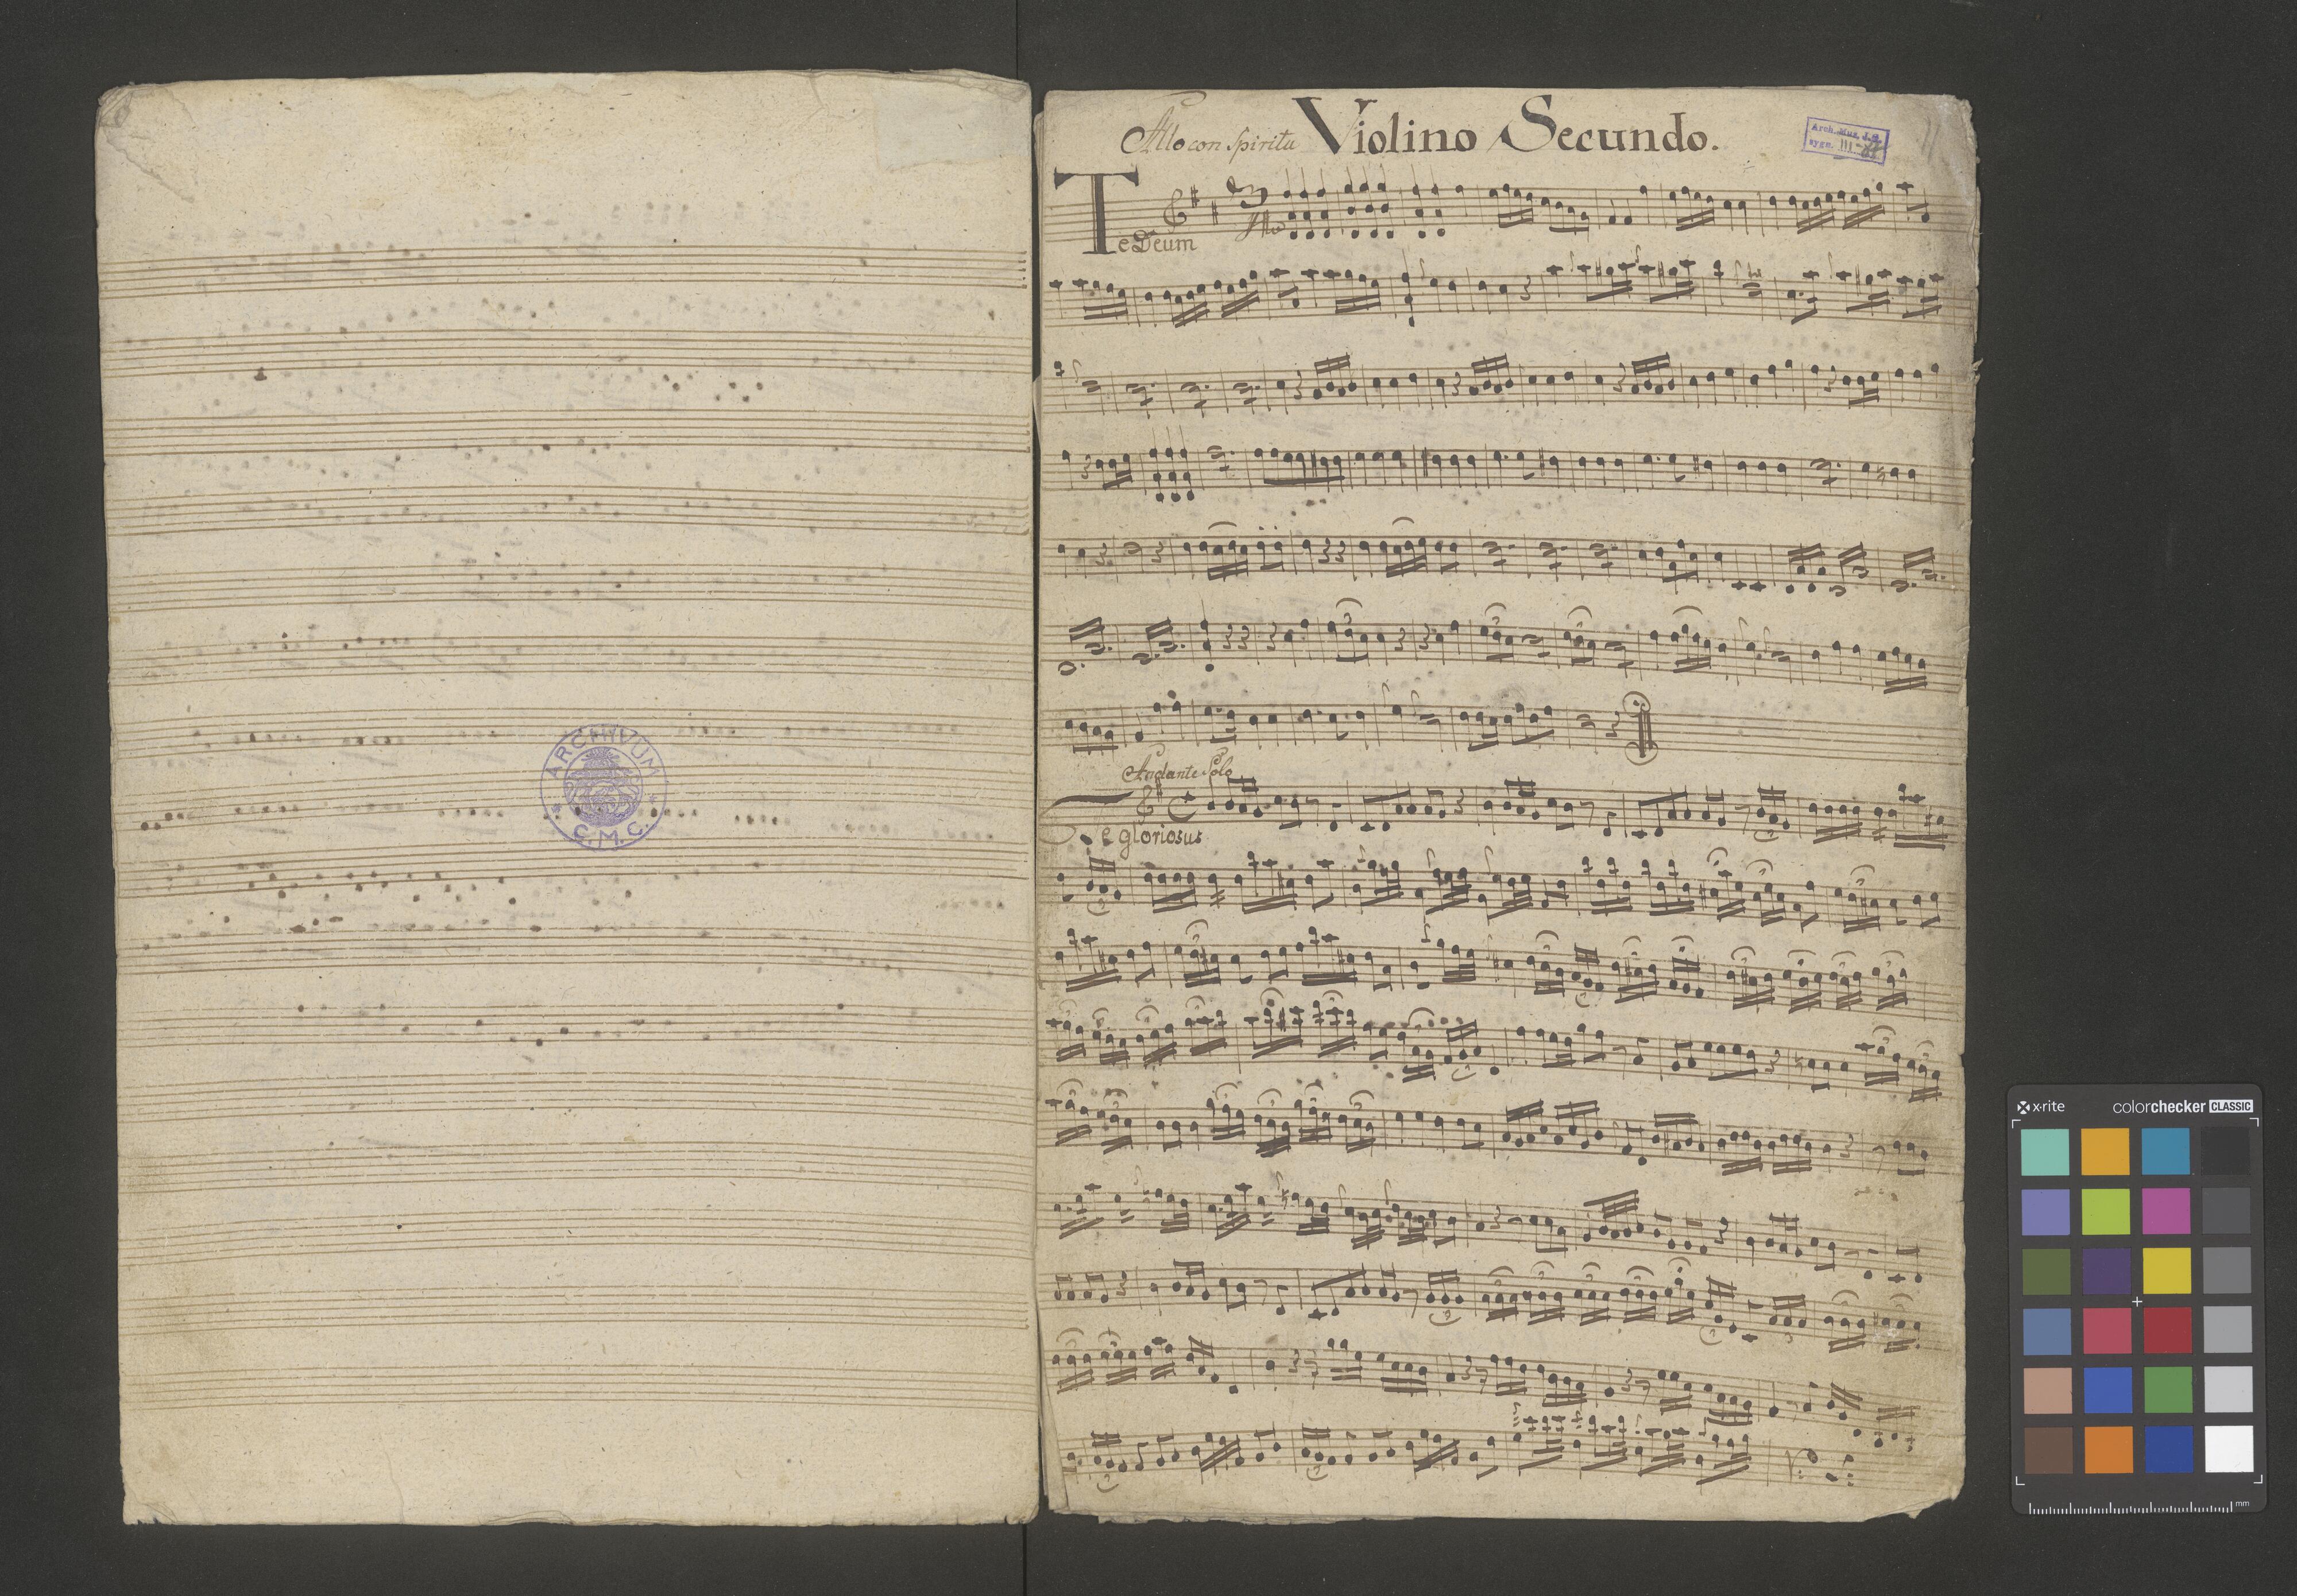 ARCHIVUM
C. M. C.
Allo con Spiritu Violino Secundo.
Arch. Mus. J. G.
sygn. III-
Te Deum
Allo
Andante Solo
Te gloriosus
x-rite colorchecker CLASSIC
mm